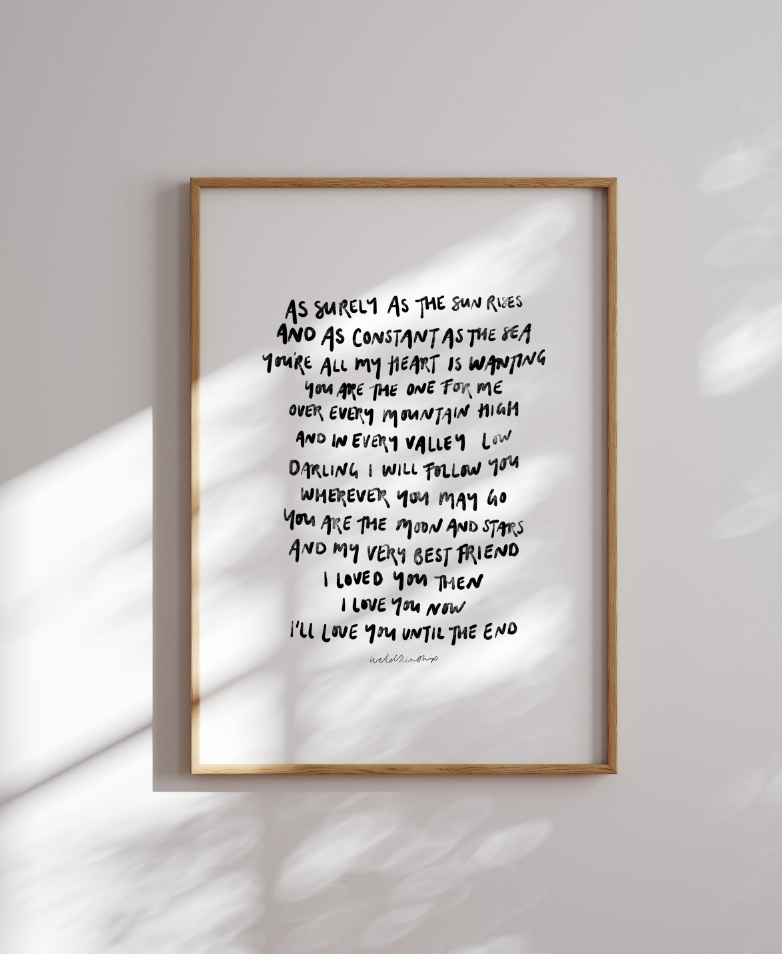 AS SURELY AS THE SUN RISES
AND AS CONSTANT AS THE SEA
YOU'RE ALL MY HEART IS WANTING
YOU ARE THE ONE FOR ME
OVER EVERY MOUNTAIN HIGH
AND IN EVERY VALLEY LOW
DARLING I WILL FOLLOW YOU
WHEREVER YOU MAY GO
YOU ARE THE MOON AND STARS
AND MY VERY BEST FRIEND
I LOVED YOU THEN
I LOVE YOU NOW
I'LL LOVE YOU UNTIL THE END